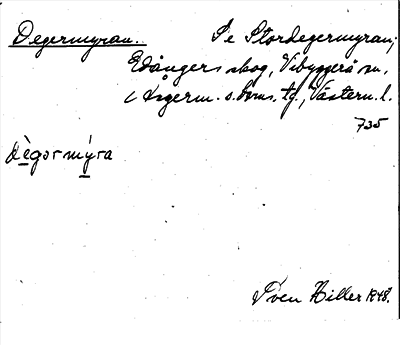 Degermyran. Se Stordegermyran;
Edångers skog, Vibyggerå sn.
i Ångerm. s. doms. tg., Västern. l.
735
Dègərmýra
Sven Hiller 1948.